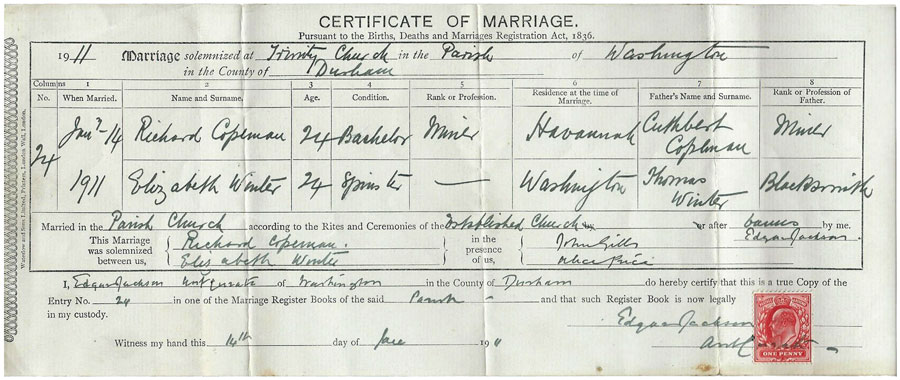 CERTIFICATE OF MARRIAGE.
Pursuant to the Births, Deaths and Marriages Registration Act, 1836.
1911 Marriage solemnized at Trinity Church in the Parish of Washington
in the County of Durham
Columns 1 2 3 4 5 6 7 8
No. When Married. Name and Surname. Age. Condition. Rank or Profession. Residence at the time of Marriage. Father's Name and Surname. Rank or Profession of Father.
24 Jany 14 1911 Richard Copeman 24 Bachelor Miner Havannah Cuthbert Copeman Miner
Elizabeth Winter 24 Spinster — Washington Thomas Winter Blacksmith
Married in the Parish Church according to the Rites and Ceremonies of the Established Church by or after banns by me.
Edgar Jackson.
This Marriage was solemnized between us, Richard Copeman. Elizabeth Winter in the presence of us, John Gills Alice Price
I, Edgar Jackson of Washington in the County of Durham do hereby certify that this is a true Copy of the
Entry No. 24 in one of the Marriage Register Books of the said Parish and that such Register Book is now legally
in my custody.
Edgar Jackson
Witness my hand this 14th day of 1911
ONE PENNY
Waterlow and Sons Limited, Printers, London Wall, London.